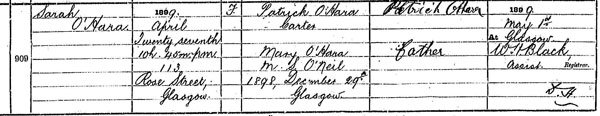 909
Sarah
O'Hara
1899.
April
Twenty seventh
10h. 40m. p.m.
113,
Rose Street,
Glasgow.
F
Patrick O'Hara
Carter
Mary O'Hara
M. S. O'Neil
1898, December 29th
Glasgow.
Patrick O'Hara
Father
1899.
May 1st
At Glasgow
W. H. Black
Assist. Registrar.